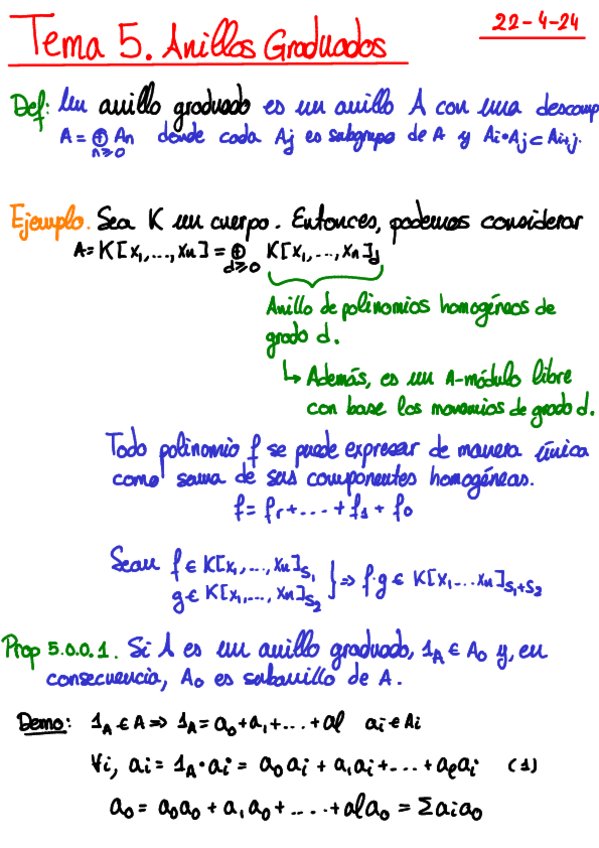 22-4-24
Tema 5. Anillos Graduados
Def: Un anillo graduado es un anillo A con una descomp
A = ⊕ₙ≥₀ Aₙ donde cada Aⱼ es subgrupo de A y Aᵢ·Aⱼ ⊂ Aᵢ₊ⱼ.
Ejemplo. Sea K un cuerpo. Entonces, podemos considerar
A = K[x₁,...,xₙ] = ⊕_{d≥0} K[x₁,...,xₙ]_d
Anillo de polinomios homogéneos de
grado d.
↳ Además, es un A-módulo libre
con base los monomios de grado d.
Todo polinomio f se puede expresar de manera única
como suma de sus componentes homogéneas.
f = fᵣ + ... + f₁ + f₀
Sean f ∈ K[x₁,...,xₙ]_{S₁}
g ∈ K[x₁,...,xₙ]_{S₂} } ⇒ f·g ∈ K[x₁...xₙ]_{S₁+S₂}
Prop 5.0.0.1. Si A es un anillo graduado, 1_A ∈ A₀ y, en
consecuencia, A₀ es subanillo de A.
Demo: 1_A ∈ A ⇒ 1_A = a₀ + a₁ + ... + al aᵢ ∈ Aᵢ
∀i, aᵢ = 1_A · aᵢ = a₀aᵢ + a₁aᵢ + ... + aₗaᵢ (1)
a₀ = a₀a₀ + a₁a₀ + .... + al a₀ = Σaᵢa₀